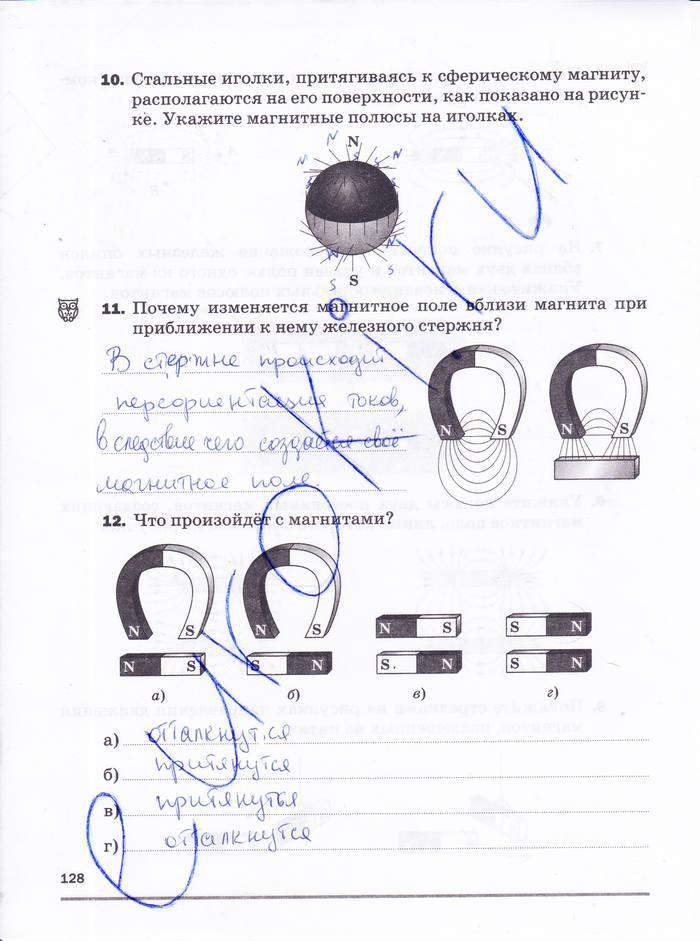 10. Стальные иголки, притягиваясь к сферическому магниту,
располагаются на его поверхности, как показано на рисун-
ке. Укажите магнитные полюсы на иголках.
N
S
11. Почему изменяется магнитное поле вблизи магнита при
приближении к нему железного стержня?
В стержне происходит
переориентация токов,
в следствие чего создаётся своё
магнитное поле.
N S N S
12. Что произойдёт с магнитами?
N S N S
N S S N
N S S N
S. N S N
а) б) в) г)
а) отталкнутся
б) притянутся
в) притянутья
г) отталкнутся
128